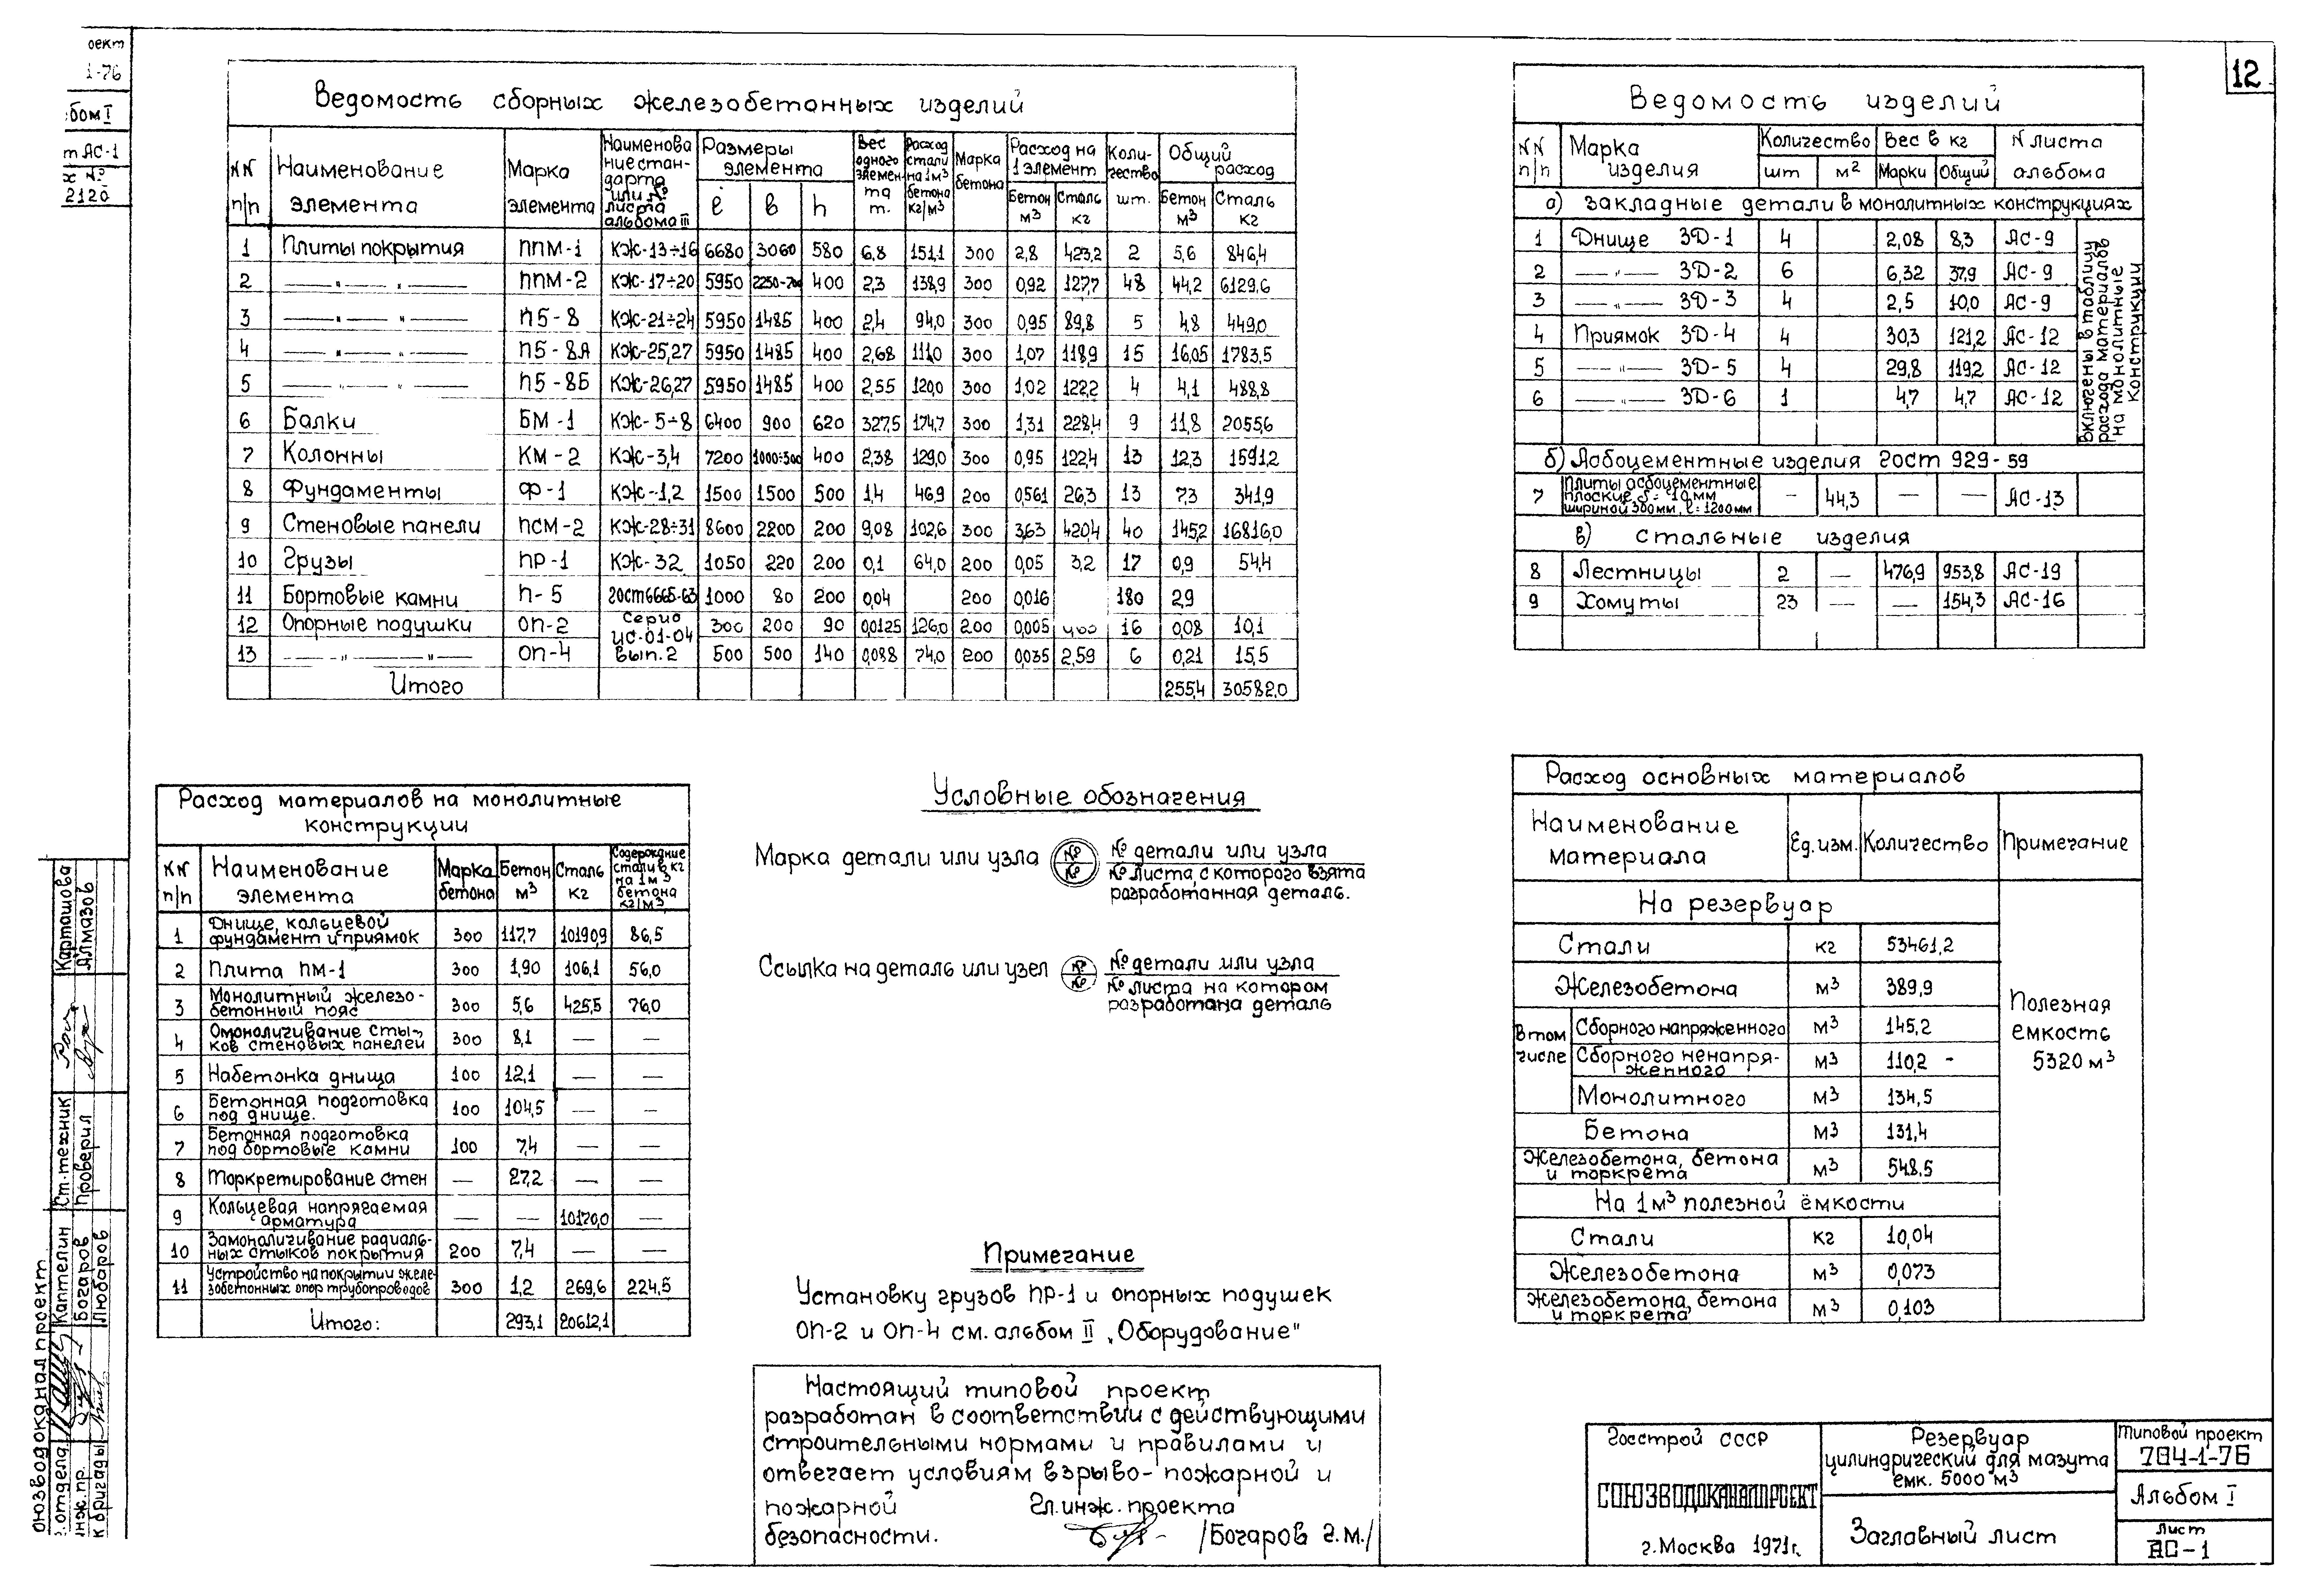 оект
1-76
бом I
т АС-1
х №
2120
12
Ведомость сборных железобетонных изделий
NN п/п | Наименование элемента | Марка элемента | Наименование стандарта или № листа альбома III | Размеры элемента ℓ | в | h | Вес одного элемента т. | Расход стали на 1м³ бетона кг/м³ | Марка бетона | Расход на 1 элемент Бетон м³ | Сталь кг | Количество шт. | Общий расход Бетон м³ | Сталь кг
1 Плиты покрытия ППМ-1 КЖ-13÷16 6680 3060 580 6,8 151,1 300 2,8 423,2 2 5,6 846,4
2 —〃—〃— ППМ-2 КЖ-17÷20 5950 400 2,3 138,9 300 0,92 127,7 48 44,2 6129,6
3 —〃—〃— П5-8 КЖ-21÷24 5950 1485 400 2,4 94,0 300 0,95 89,8 5 4,8 449,0
4 —〃—〃— П5-8А КЖ-25,27 5950 1485 400 2,68 111,0 300 1,07 118,9 15 16,05 1783,5
5 —〃—〃— П5-8Б КЖ-26,27 5950 1485 400 2,55 120,0 300 1,02 122,2 4 4,1 488,8
6 Балки БМ-1 КЖ-5÷8 6400 900 620 3,275 174,7 300 1,31 228,4 9 11,8 2055,6
7 Колонны КМ-2 КЖ-3,4 7200 1000÷300 400 2,38 129,0 300 0,95 122,4 13 12,3 1591,2
8 Фундаменты Ф-1 КЖ-1,2 1500 1500 500 1,4 46,9 200 0,561 26,3 13 7,3 341,9
9 Стеновые панели ПСМ-2 КЖ-28÷31 8600 2200 200 9,08 102,6 300 3,63 420,4 40 145,2 16816,0
10 Грузы ПР-1 КЖ-32 1050 220 200 0,1 64,0 200 0,05 3,2 17 0,9 54,4
11 Бортовые камни П-5 ГОСТ 6665-63 1000 80 200 0,04 200 0,016 180 2,9
12 Опорные подушки ОП-2 Серия ИС-01-04 300 200 90 0,0125 126,0 200 0,005 16 0,08 10,1
13 —〃—〃— ОП-4 Вып.2 500 500 140 0,088 74,0 200 0,035 2,59 6 0,21 15,5
Итого 255,4 30582,0
Ведомость изделий
NN п/п | Марка изделия | Количество шт | м² | Вес в кг Марки | Общий | N листа альбома
а) Закладные детали в монолитных конструкциях
1 Днище ЗД-1 4 2,08 8,3 АС-9
2 —〃— ЗД-2 6 6,32 37,9 АС-9
3 —〃— ЗД-3 4 2,5 10,0 АС-9
4 Приямок ЗД-4 4 30,3 121,2 АС-12
5 —〃— ЗД-5 4 29,8 119,2 АС-12
6 —〃— ЗД-6 1 4,7 4,7 АС-12
Включены в таблицу
расхода материалов
на монолитные
конструкции
б) Асбоцементные изделия ГОСТ 929-59
7 Плиты асбоцементные плоские δ=10мм шириной 300мм, ℓ=1200мм — 44,3 — — АС-13
в) Стальные изделия
8 Лестницы 2 — 476,9 953,8 АС-19
9 Хомуты 23 — — 154,3 АС-16
Расход материалов на монолитные
конструкции
NN п/п | Наименование элемента | Марка бетона | Бетон м³ | Сталь кг | Содержание стали в кг на 1м³ бетона кг/м³
1 Днище, кольцевой фундамент и приямок 300 117,7 10190,9 86,5
2 Плита ПМ-1 300 1,90 106,1 56,0
3 Монолитный железобетонный пояс 300 5,6 425,5 76,0
4 Омоноличивание стыков стеновых панелей 300 8,1 — —
5 Набетонка днища 100 12,1 — —
6 Бетонная подготовка под днище. 100 104,5 — —
7 Бетонная подготовка под бортовые камни 100 7,4 — —
8 Торкретирование стен — 27,2 — —
9 Кольцевая напрягаемая арматура — — 10120,0 —
10 Замоноличивание радиальных стыков покрытия 200 7,4 — —
11 Устройство на покрытии железобетонных опор трубопроводов 300 1,2 269,6 224,5
Итого: 293,1 20612,1
Условные обозначения
Марка детали или узла № № № детали или узла
№ листа, с которого взята
разработанная деталь.
Ссылка на деталь или узел № № № детали или узла
№ листа на котором
разработана деталь
Примечание
Установку грузов ПР-1 и опорных подушек
ОП-2 и ОП-4 см. альбом II „Оборудование"
Настоящий типовой проект
разработан в соответствии с действующими
строительными нормами и правилами и
отвечает условиям взрыво-пожарной и
пожарной Гл.инж.проекта
безопасности. /Богаров Г.М./
Расход основных материалов
Наименование материала | Ед.изм. | Количество | Примечание
На резервуар
Стали кг 53461,2
Железобетона м³ 389,9
В том числе
Сборного напряженного м³ 145,2
Сборного ненапряженного м³ 110,2 -
Монолитного м³ 134,5
Бетона м³ 131,4
Железобетона, бетона и торкрета м³ 548,5
На 1м³ полезной ёмкости
Стали кг 10,04
Железобетона м³ 0,073
Железобетона, бетона и торкрета м³ 0,103
Полезная
емкость
5320 м³
Госстрой СССР
СОЮЗВОДОКАНАЛПРОЕКТ
г.Москва 1971г.
Резервуар
цилиндрический для мазута
емк. 5000 м³
Заглавный лист
Типовой проект
704-1-76
Альбом I
Лист
АС-1
оюзводоканалпроект
отдела Каптелин Ст.техник Карташова
инж.пр. Богаров Проверил Алмазов
к бригады Любаров